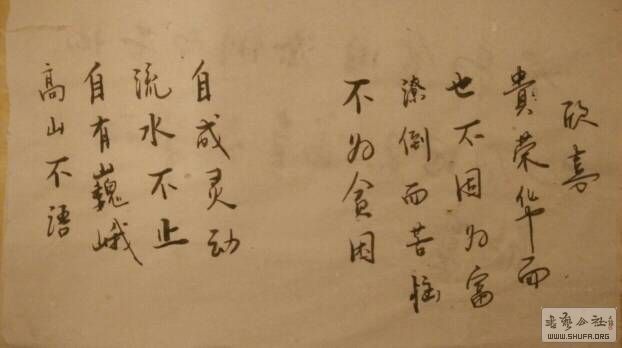 高山不语
自有巍峨
流水不止
自成灵动
不为贫困
潦倒而苦恼
也不因为富
貴荣华而
欣喜
书艺公社
WWW.SHUFA.ORG